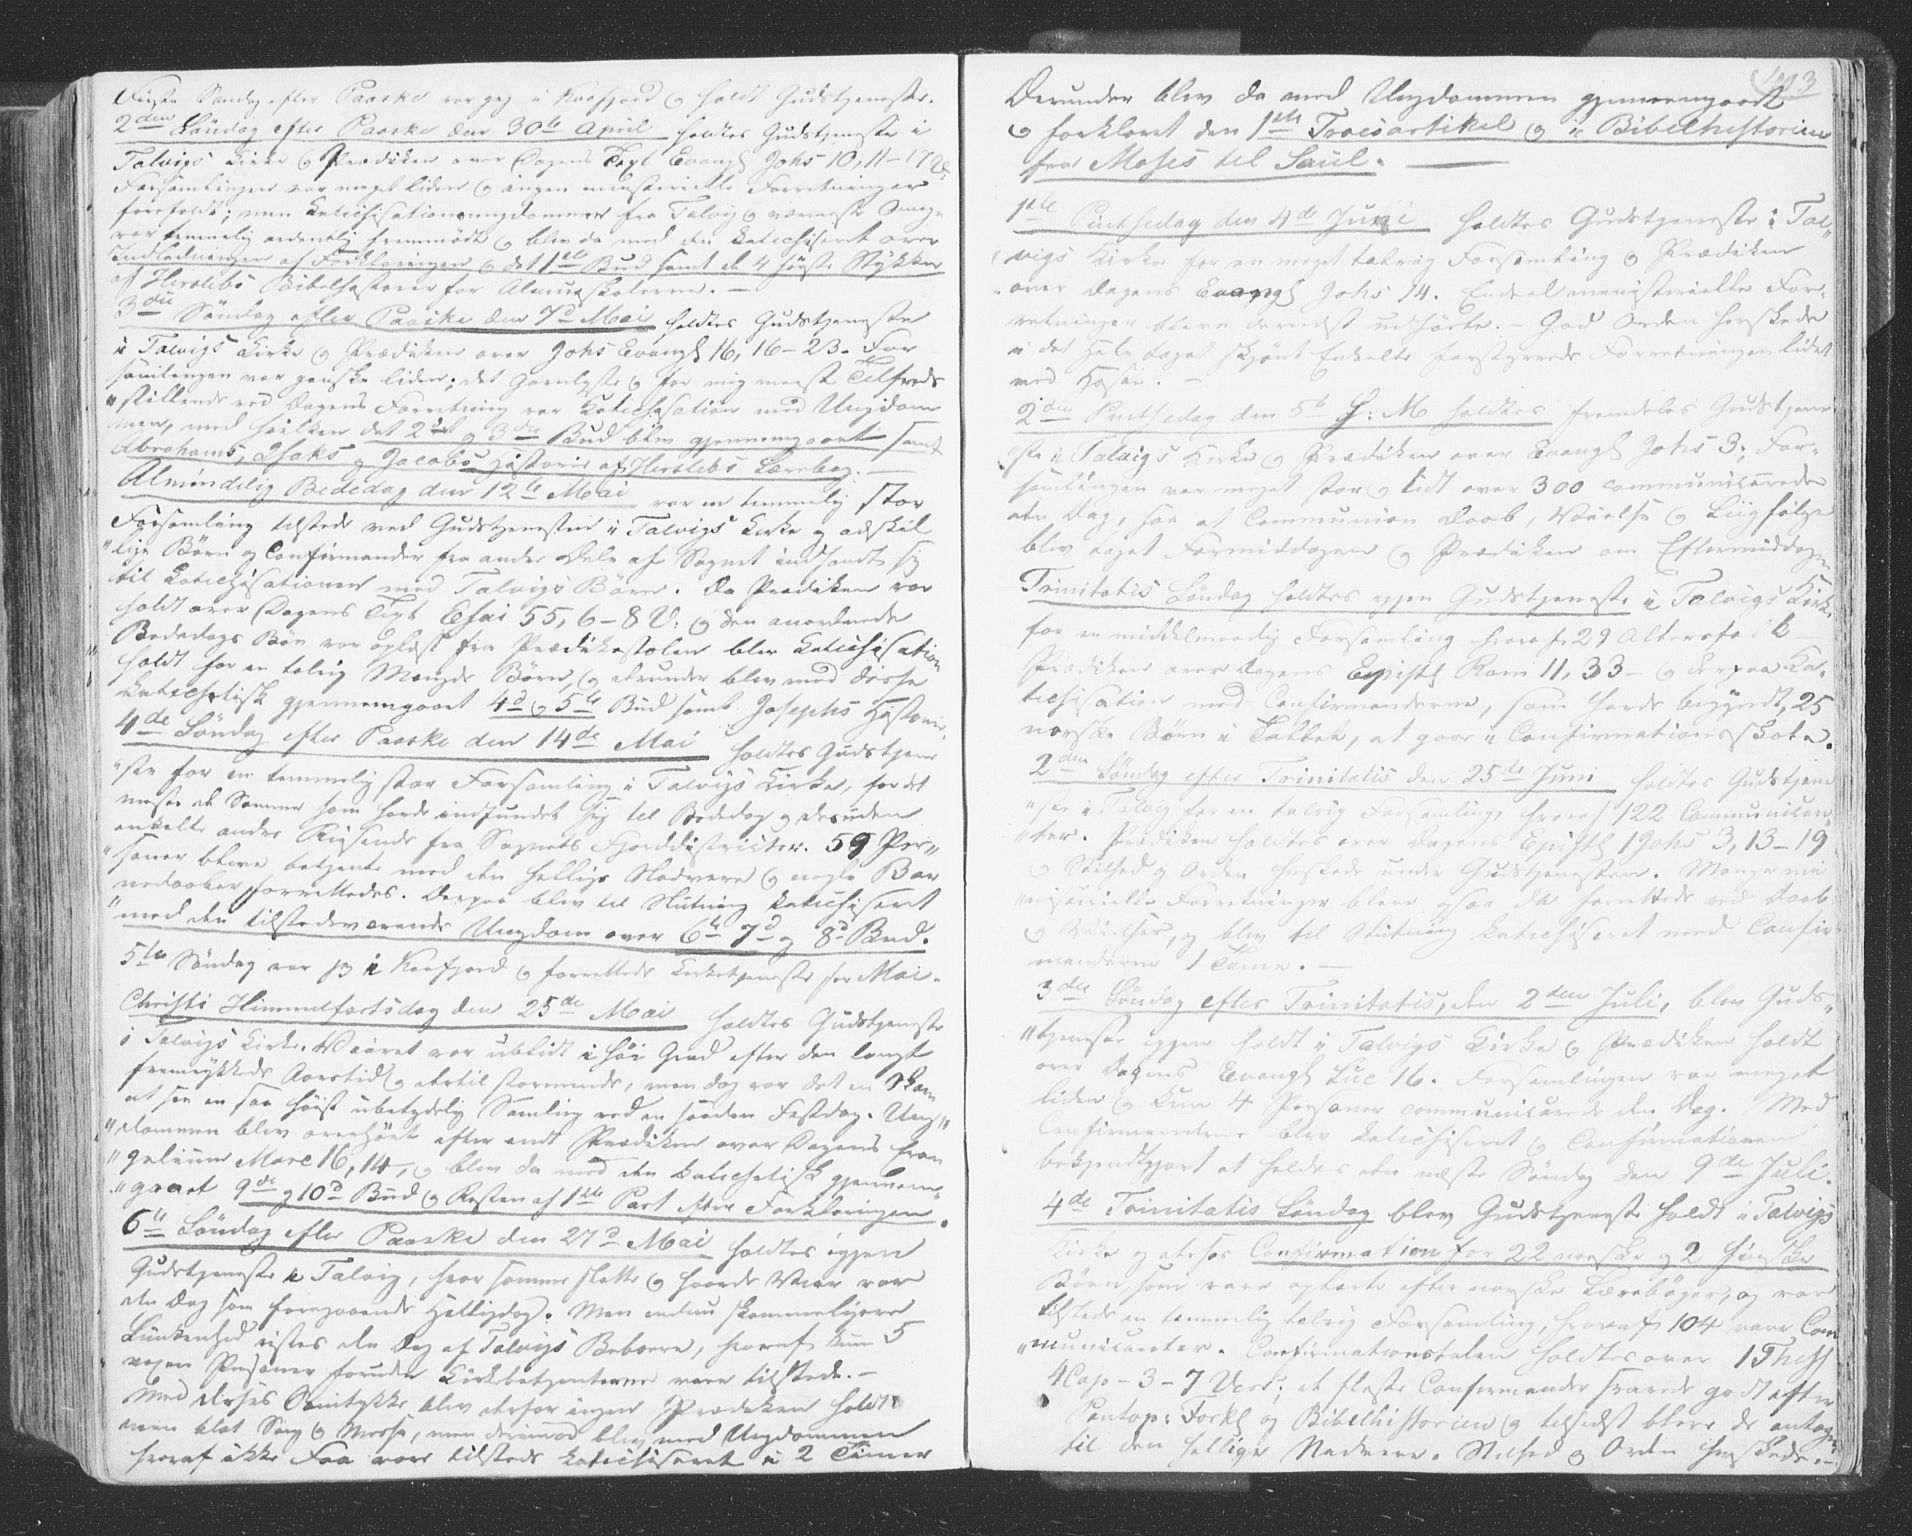 Første Søndag efter Paaske var jeg i Kaafjord og holdt Gudstjeneste.
2den Søndag efter Paaske den 30te April holdtes Gudstjeneste i
Talvigs Kirke og Prædiken over Dagens Text Evangl Johs 10, 11-17
Forsamlingen var meget liden og ingen ministerielle Forretninger
forefaldt; men Katechisationsungdommen fra Talvig og nærmeste Omegn
var temmelig ordentlig fremmødt og blev da med den katechiseret over
Indledningen af Forklaringen og det 1ste Bud samt de 4 første Stykker
af Herslebs Bibelhistorie for Almueskolerne. —
3die Søndag efter Paaske den 7d Mai holdtes Gudstjeneste
i Talvigs Kirke og Prædiken over Johs Evangl 16, 16-23. For
samlingen var ganske liden; det Gavnligste og for mig meest Tilfreds
stillende ved Dagens Forretning var Katechisation med Ungdom
men, med hvilken det 2det og 3die Bud blev gjennemgaaet samt
Abrahams, Isaks og Jacobs Historie af Herslebs Lærebog. —
Almindelig Bededag den 12te Mai var en temmelig stor
Forsamling tilstede ved Gudstjenesten i Talvigs Kirke og adskil
lige Børn og Confirmander fra andre Dele af Sognet indfandt sig
til Katechisationen med Talvigs Børn. Da Prædiken var
holdt over Dagens Text Esai 55, 6-8 V: og den anordnede
Bededags Bøn var oplæst fra Prædikestolen blev Katechisation
holdt for en talrig Mængde Børn, og derunder blev med disse
katechetisk gjennemgaaet 4d og 5te Bud samt Josephs Historie.
4de Søndag efter Paaske den 14de Mai holdtes Gudstjene
ste for en temmelig stor Forsamling i Talvigs Kirke, for det
meste de Samme som havde indfundet sig til Bededag og desuden
enkelte andre Reisende fra Sognets Fjorddistricter. 59 Per
soner bleve betjente med den hellige Nadvere og nogle Bar
nedaaber forrettedes. Derpaa blev til Slutning katechiseret
med den tilstedeværende Ungdom over 6te 7d og 8d Bud.
5te Søndag var jeg i Kaafjord og forrettede Kirketjeneste for Mai.
Christi Himmelfartsdag den 25de Mai holdtes Gudstjeneste
i Talvigs Kirke. Vaaret var ublidt i høi Grad efter den langt
fremrykkede Aarstid og dertil stormende, men dog var det en Skam
at see en saa høist ubetydelig Samling ved en saadan Festdag. Ung
dommen blev overhørt efter endt Prædiken over Dagens Evan
gelium Marc 16, 14, og blev da med den katechetisk gjennem
gaaet 9de og 10d Bud og Resten af 1ste Part efter Forklaringen.
6te Søndag efter Paaske den 27d Mai holdtes igjen
Gudstjeneste i Talvig, hvor samme slette og haarde Veir var
den Dag som foregaaende Helligdag. Men endnu skammeligere
Lunkenhed vistes den Dag af Talvigs Beboere, hvoraf kun 5
voxne Personer foruden Kirkebetjenterne vare tilstede. —
Med disses Samtykke blev derfor ingen Prædiken holdt
men blot Sang og Messe, men derimod blev med Ungdommen
hvoraf ikke Faa vare tilstede katechiseret i 2 Timer
Derunder blev da med Ungdommen gjennemgaaet
og forklaret den 1ste Troesartikel og i Bibelhistorien
fra Moses til Saul. —
1ste Pintsedag den 4d Juni holdtes Gudstjeneste i Tal
vigs Kirke for en meget talrig Forsamling og Prædiken
over Dagens Evangl Johs 14. Endeel ministerielle For
retninger bleve dernæst udførte. God Orden herskede
i det Hele taget skjønt Enkelte forstyrrede Forretningen lidet
med Hosten. —
2den Pintsedag den 5te h: M holdtes fremdeles Gudstjene
ste i Talvigs Kirke og Prædiken over Evangl Johs 3; For
samlingen var meget stor og lidt over 300 communicerede
den Dag, saa at Communion Daab, Vielse og Liigfølge
blev taget Formiddagen og Prædiken om Eftermiddagen
Trinitatis Søndag holdtes igjen Gudstjeneste i Talvigs Kirke
for en middelmaadig Forsamling hvoraf 29 Altersfolk —
Prædiken over Dagens Epistl Rom 11, 33 — og derpaa Ka
techisation med Confirmanderne, som havde begyndt, 25
norske Børn i Tallet, at gaae i Confirmationsskole.
2den Søndag efter Trinitatis den 25de Juni holdtes Gudstjene
ste i Talvig for en talrig Forsamling, hvoraf 122 Communican
ter. Prædiken holdtes over Dagens Epistl 1 Johs 3, 13-19
og Stilhed og Orden herskede under Gudstjenesten. Mange mi
nisterielle Forretninger bleve ogsaa da forrettede ved Daab
og Vielser, og blev til Slutning katechiseret med Confir
manderne 1 Time. —
3die Søndag efter Trinitatis, den 2den Juli, blev Guds
tjeneste igjen holdt i Talvigs Kirke og Prædiken holdt
over Dagens Evangl Luc 16. Forsamlingen var meget
liden og kun 4 Personer communicerede den Dag. Med
Confirmanderne blev katechiseret og Confirmationen
bekjendtgjort at holdes den næste Søndag den 9de Juli.
4de Trinitatis Søndag blev Gudstjeneste holdt i Talvigs
Kirke og derhos Confirmation for 22 norske og 2 finske
Børn som vare oplærte efter norske Lærebøger, og var
tilstede en temmelig talrig Forsamling, hvoraf 104 vare Com
municanter. Confirmationstalen holdtes over 1 Thess
4 Cap - 3-7 Vers; de fleste Confirmander svarede godt efter
Pontop: Forkl og Bibelhistorien og tilsidst bleve de antagne
til den hellige Nadvere. Stilhed og Orden herskede. —